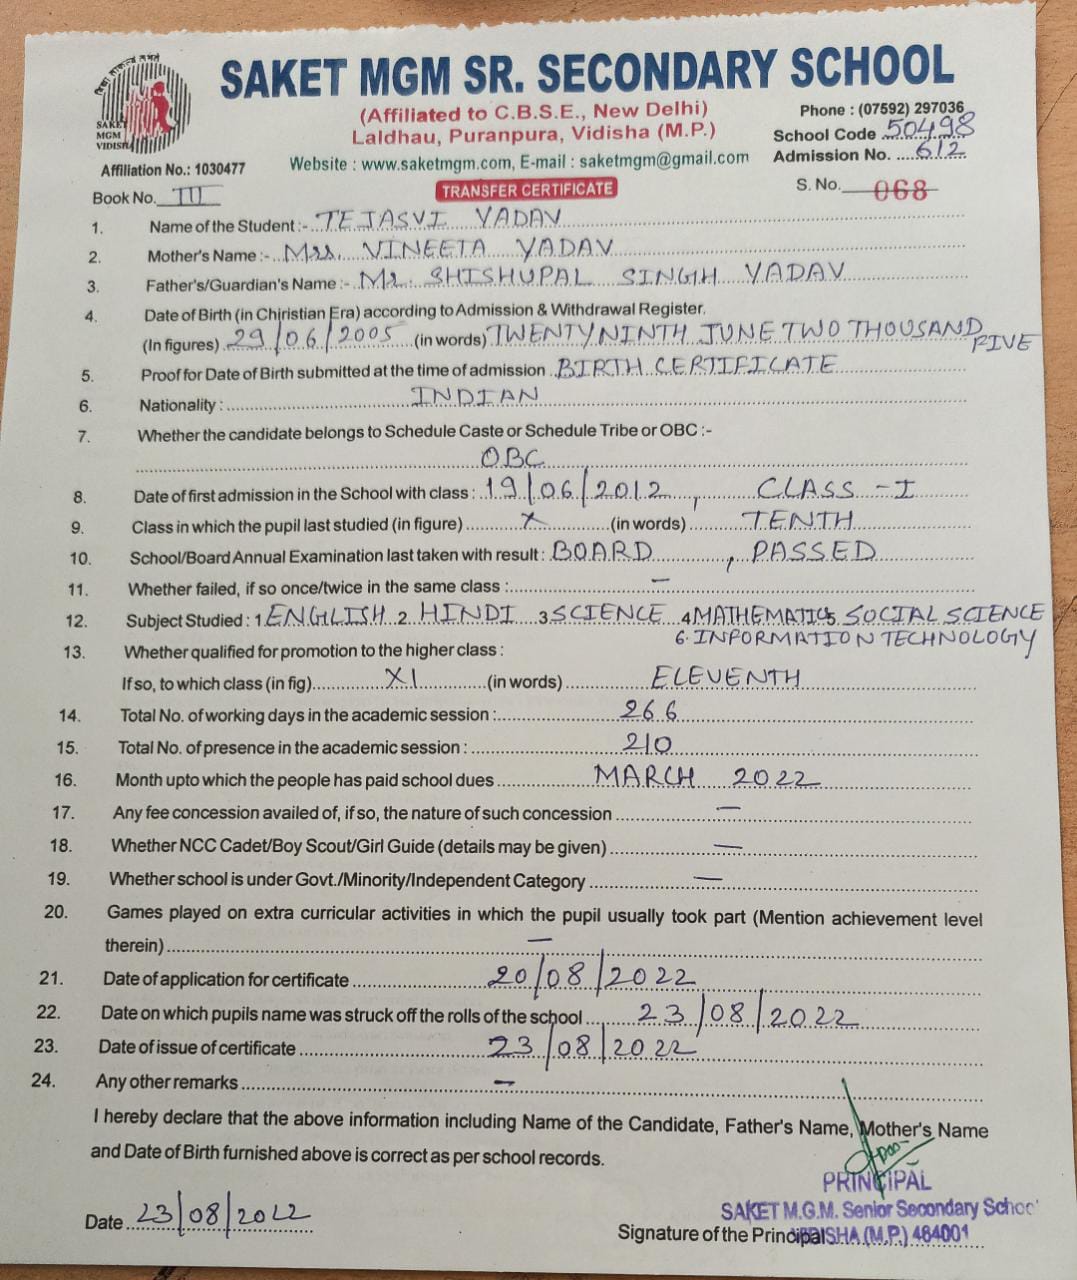 SAKET MGM SR. SECONDARY SCHOOL
(Affiliated to C.B.S.E., New Delhi)
Laldhau, Puranpura, Vidisha (M.P.)
Phone : (07592) 297036
School Code 50498
Admission No. 612
SAKET
MGM
VIDISHA
Affiliation No.: 1030477
Website : www.saketmgm.com, E-mail : saketmgm@gmail.com
Book No. III
TRANSFER CERTIFICATE
S. No. 068
1. Name of the Student :- TEJASVI YADAV
2. Mother's Name :- Mrs. VINEETA YADAV
3. Father's/Guardian's Name :- Mr. SHISHUPAL SINGH YADAV
4. Date of Birth (in Chiristian Era) according to Admission & Withdrawal Register.
(In figures) 29/06/2005 (in words) TWENTY NINTH JUNE TWO THOUSAND FIVE
5. Proof for Date of Birth submitted at the time of admission BIRTH CERTIFICATE
6. Nationality : INDIAN
7. Whether the candidate belongs to Schedule Caste or Schedule Tribe or OBC :-
OBC
8. Date of first admission in the School with class : 19/06/2012, CLASS - I
9. Class in which the pupil last studied (in figure) X (in words) TENTH
10. School/Board Annual Examination last taken with result : BOARD, PASSED
11. Whether failed, if so once/twice in the same class : -
12. Subject Studied : 1 ENGLISH 2 HINDI 3 SCIENCE 4 MATHEMATICS 5 SOCIAL SCIENCE
6. INFORMATION TECHNOLOGY
13. Whether qualified for promotion to the higher class :
If so, to which class (in fig) XI (in words) ELEVENTH
14. Total No. of working days in the academic session : 266
15. Total No. of presence in the academic session : 210
16. Month upto which the people has paid school dues MARCH 2022
17. Any fee concession availed of, if so, the nature of such concession -
18. Whether NCC Cadet/Boy Scout/Girl Guide (details may be given) -
19. Whether school is under Govt./Minority/Independent Category -
20. Games played on extra curricular activities in which the pupil usually took part (Mention achievement level
therein) -
21. Date of application for certificate 20/08/2022
22. Date on which pupils name was struck off the rolls of the school 23/08/2022
23. Date of issue of certificate 23/08/2022
24. Any other remarks -
I hereby declare that the above information including Name of the Candidate, Father's Name, Mother's Name
and Date of Birth furnished above is correct as per school records.
PRINCIPAL
SAKET M.G.M. Senior Secondary School
Date 23/08/2022
Signature of the Principal
VIDISHA (M.P.) 464001